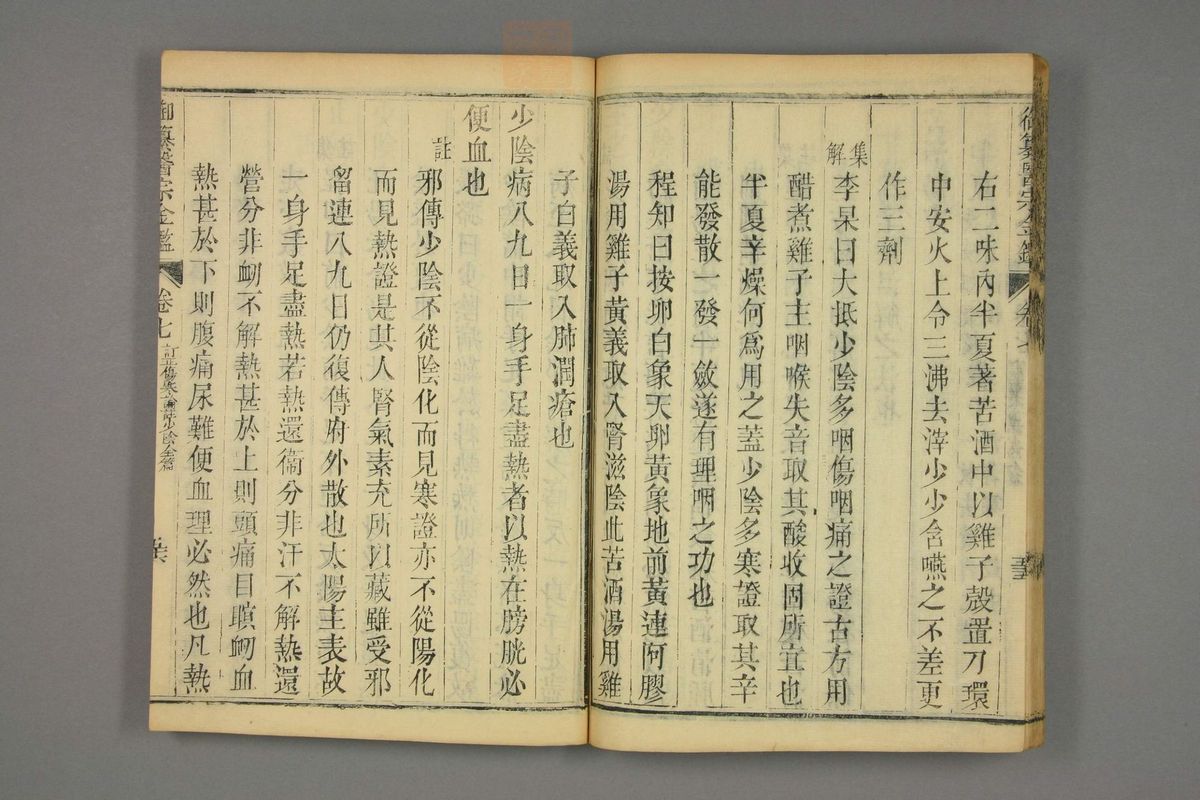 御纂醫宗金鑑
卷七
右二味內半夏著苦酒中以雞子殼置刀環
中安火上令三沸去滓少少含嚥之不差更
作三劑
集解
李杲曰大抵少陰多咽傷咽痛之證古方用
醋煮雞子主咽喉失音取其酸收固所宜也
半夏辛燥何為用之蓋少陰多寒證取其辛
能發散一發一斂遂有理咽之功也
程知曰按卵白象天卵黃象地前黃連阿膠
湯用雞子黃義取入腎滋陰此苦酒湯用雞
子白義取入肺潤瘡也
少陰病八九日一身手足盡熱者以熱在膀胱必
便血也
註
邪傳少陰不從陰化而見寒證亦不從陽化
而見熱證是其人腎氣素充所以藏雖受邪
留連八九日仍復傳府外散也太陽主表故
一身手足盡熱若熱還衞分非汗不解熱還
營分非衂不解熱甚於上則頭痛目瞑衂血
熱甚於下則腹痛尿難便血理必然也凡熱
御纂醫宗金鑑
卷七
訂正傷寒論註少陰全篇